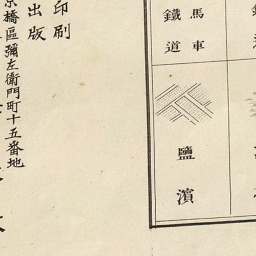 馬車
鐵道
鹽濱
印刷
出版
京橋區彌左衞門町十五番地